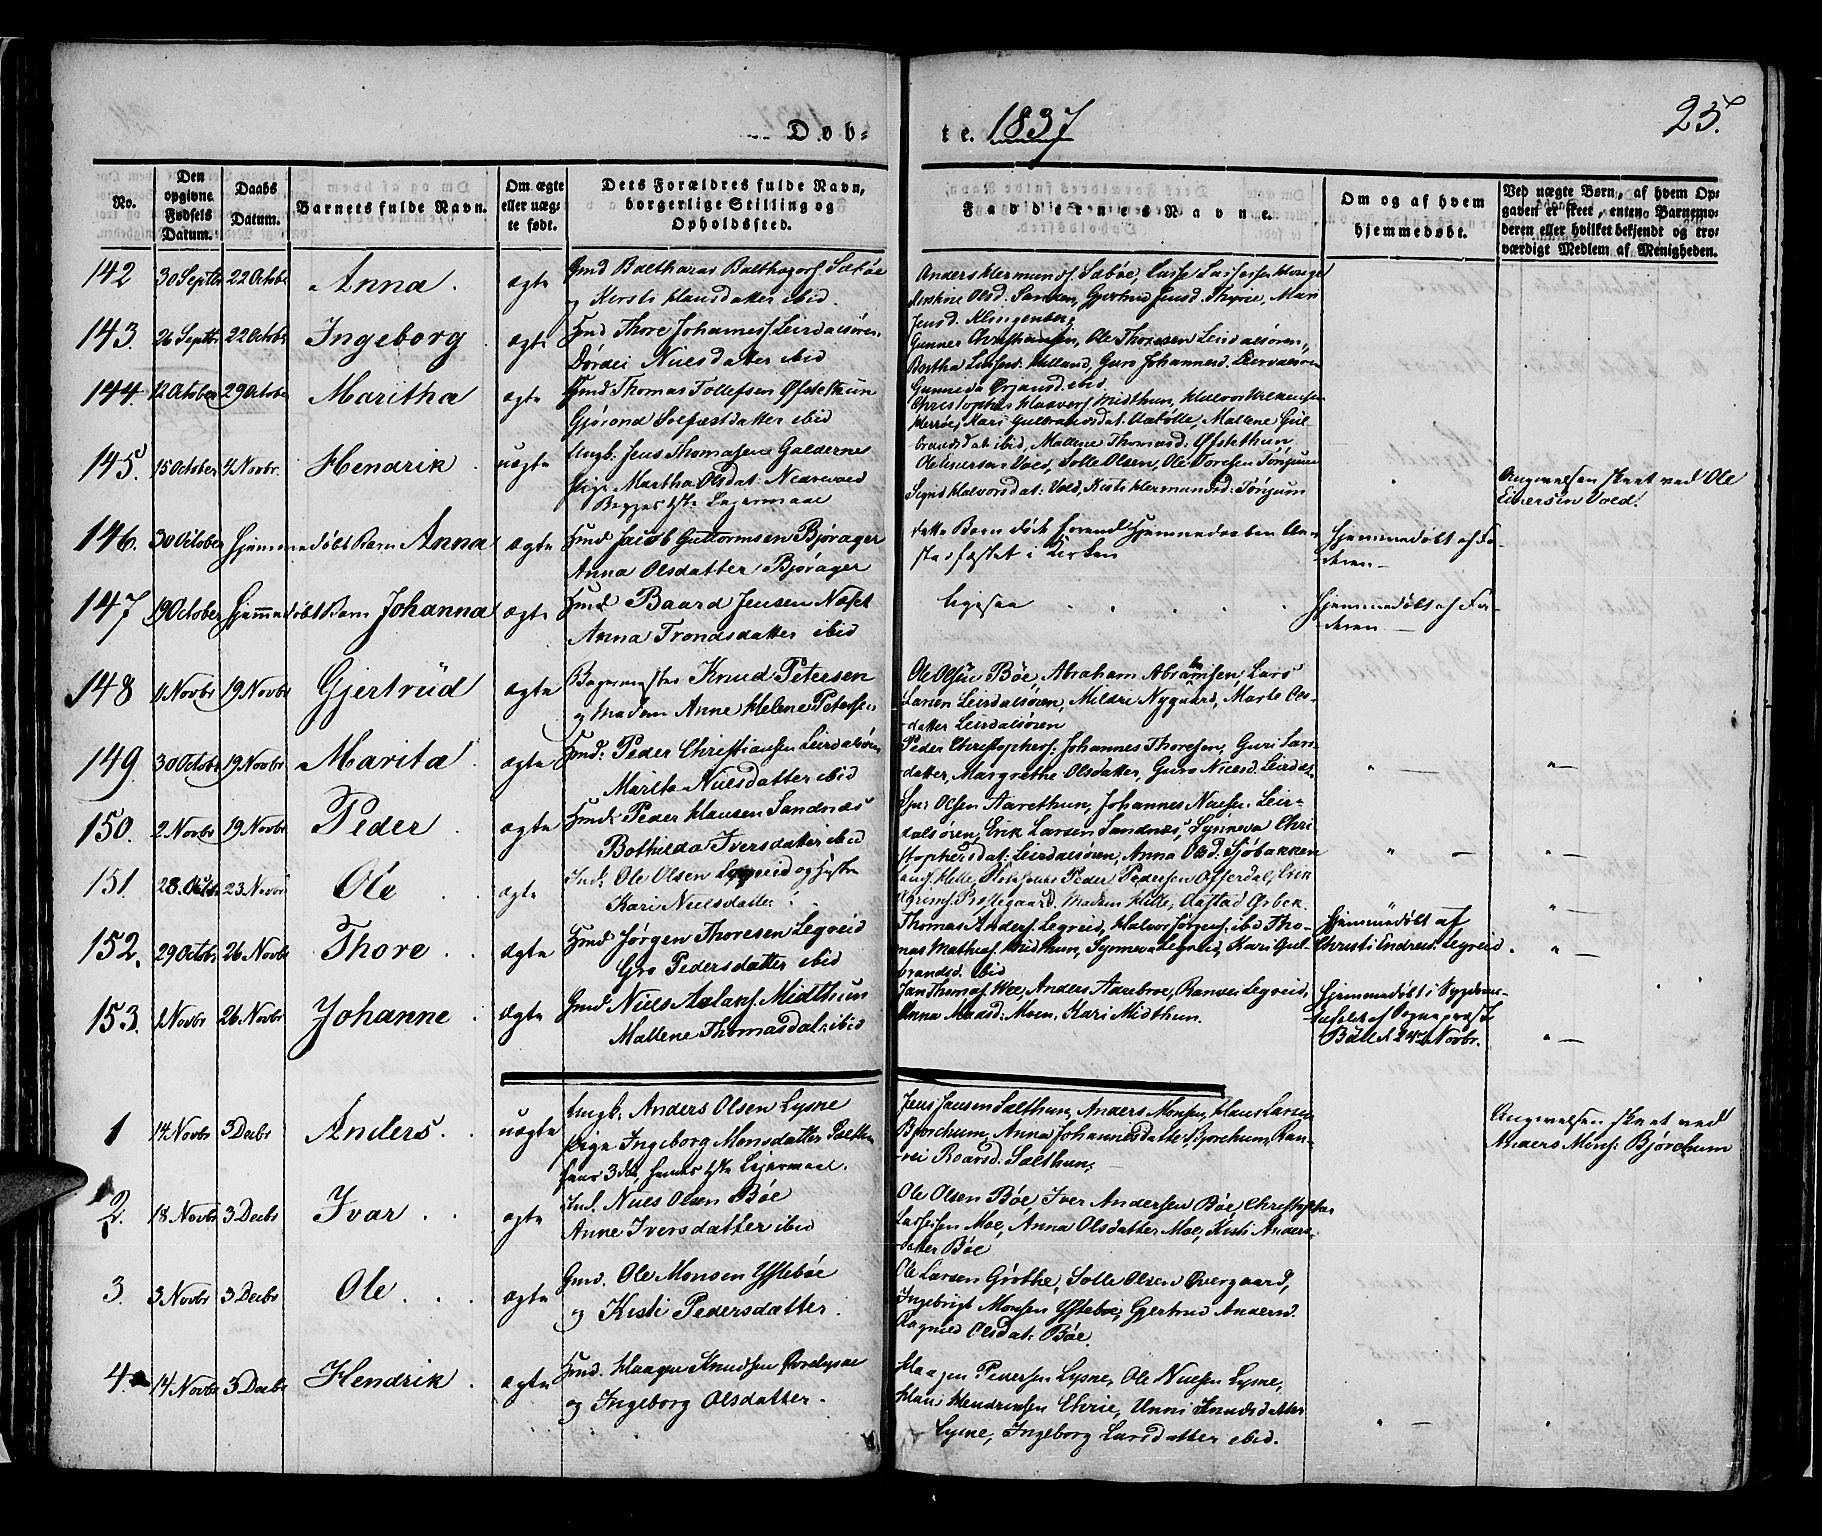 Døb-
te. 1837
25.
No.
Den opgivne Fødsels Datum.
Daabs Datum.
Barnets fulde Navn.
Om ægte eller uægte født.
Dets Forældres fulde Navn, borgerlige Stilling og Opholdssted.
Faddernes Navne.
Om og af hvem hjemmedøbt.
Ved uægte Børn, af hvem Opgaven er skeet, enten Barnemoderen eller hvilket bekjendt og troværdigt Medlem af Menigheden.
142 30 Septbr 22 Octobr Anna. ægte Gmd Balthazar Balthazars Sæbøe
og Kersti Hansdatter ibid.
Anders Hermunds. Sæbøe, Lasse
Olsd. Gjertrud Jensd. Thyne, Mari
Jensd. Klingenberg
143. 26 Septbr 22 Octobr Ingeborg ægte Hmd Thore Johannes. Leirdalsøren.
Dordei Nielsdatter ibid
Gunner Christiansen, Ole Thoresen Leirdalsøren,
Guro Johannesd. Leirdalsøren
144. 12 October 29 October Maritha ægte Hmd Thomas Tollefsen Ofstethun
Gjørond Solfæstdatter ibid
Gunneda Ørjansd. ibid
Midthun, Halvor
Mari Gulbrandsdat. Mallene Gul-
brandsdat. ibid, Mallene Thomasd. Ofstethun
145. 15 October 4 Novbr. Hendrik uægte Ungk: Jens Thomasen Galderne
Pige Martha Olsdat: Nedrevold
Begges 1ste Leiermaal
Ole Eversen Vold, Solle Olsen, Ole Toresen Tønjum
Sigrid Halvorsdat: Vold, Kisti Hermundsd: Tønjum
Angivelsen skeet ved Ole
Eversen Vold.
146. 30 October Hjemmedøbt Barn Anna ægte Hmd Jacob Guttormsen Bjørager
Anna Olsdatter Bjørager
dette Barn døde forend Hjemmedaaben blev
stadfæstet i Kirken
Hjemmedøbt af Fa-
deren
147 19 October Hjemmedøbt Barn Johanna ægte Hmd Baard Jensen Næset
Anna Trondsdatter ibid
ligesaa
Hjemmedøbt af Fa-
deren
148 1 Novbr 19 Novbr Gjertrud ægte Bagermester Knud Petersen
og Madam Anne Helene Petersen
Ole Olsen Bøe, Abraham Abrahamsen, Lars
Larsen Leirdalsøren, Mildri Nygaard, Marte Ols-
datter Leirdalsøren
149. 30 Octobr 19 Novbr Marita ægte Hmd. Peder Christiansen Leirdalsøren
Marita Nielsdatter ibid
Peder Christophers. Johannes Thoresen, Guri Lars-
datter, Margrethe Olsdatter, Guro Nielsd. Leirdals-
150. 2 Novbr 19 Novbr Peder ægte Hmd: Peder Hansen Sandnæs
Bothilda Iversdatter ibid
Olsen Aarethun, Johannes Nielsen Leir-
dalsøren, Erik Larsen Sandnæs, Synneva Chri-
stophersdat: Leirdalsøren, Anna Olsd. Sjøbakken
151. 28. Octobr 23. Novbr Ole ægte Ind: Ole Olsen og Hustru
Kari Nielsdatter
Hille, Peder Pedersen Offerdal, Erik
Prestegaard. Madam Hille,
152. 29 Octobr 26 Novbr Thore ægte Hmd Jørgen Thoresen Legreid
Gro Pedersdatter ibid
Thomas Anders. Legreid, Halvor Jørgens. ibid Tho-
mas Mathias. Midthun, Synneva Legreid, Kari Gul-
brandsd. ibid
Hjemmedøbt af
Christi Endresd. Legreid
153. 1 Novbr 26 Novbr Johanne ægte Gmd: Niels Aslaks. Midthun
Mallene Thomasdat: ibid
Jan Thomas. Wee, Anders Aarebroe, Ranvei Legreid,
Anna Maasd: Moen, Kari Midthun.
Hjemmedøbt i Sygdoms-
tilfælde af Sogneprest
Bøll d 24de Novbr.
1 14 Novbr 3 Decbr Anders. uægte Ungk: Anders Olsen Lysne
Pige Ingeborg Monsdatter Salthun
hans 3die, hendes 1ste Lejermaal.
Jens Jansen Salthun, Anders Monsen, Hans Larsen
Bjørchum, Anna Johannesdatter Bjorchum, Ran-
vei Roarsd. Salthun.
Angivelsen skeet ved
Anders Mons: Bjørchum
2. 18 Novbr 3 Decbr Ivar ægte Ind. Niels Olsen Bøe
Anne Iversdatter ibid
Ole Olsen Bøe, Iver Andersen Bøe, Christopher
Lassesen Moe, Anna Olsdatter Moe, Kisti Anders-
datter Bøe
3. 3 Novbr 3 Decbr Ole ægte Gmd. Ole Monsen Ystebøe
og Kisti Pedersdatter.
Ole Larsen Grøthe, Solle Olsen Overgaard,
Ingebrigt Monsen Ystebøe, Gjertrud Andersd.
Ragnild Olsdat: Bøe.
4. 14 Novbr 3 Decbr Hendrik ægte Hmd. Haagen Knudsen Øvrelysne
og Ingeborg Olsdatter.
Haagen Pedersen Lysne, Ole Nielsen Lysne,
Hans Hendriksen Ehrie, Unni Knudsdatter
Lysne, Ingeborg Larsdatter ibid.